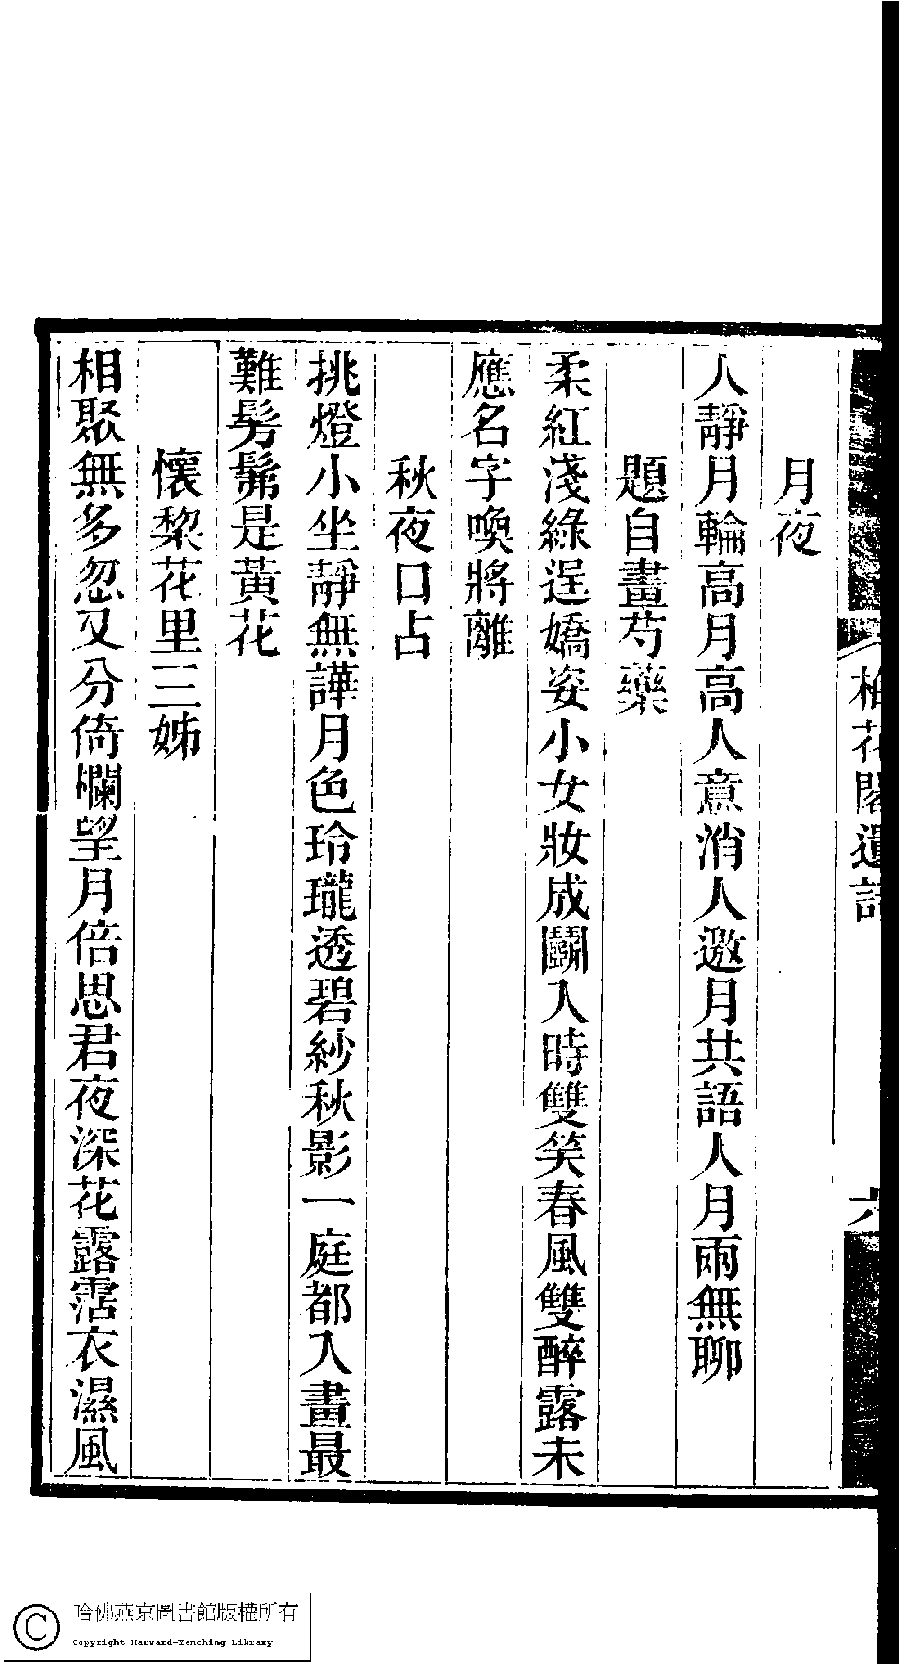 梅花閣遺詩
六
月夜
人靜月輪高月高人意消人邀月共語人月雨無聊
題自畫芍藥
柔紅淺綠逞嬌姿小女妝成鬭入時雙笑春風雙醉露未
應名字喚將離
秋夜口占
挑燈小坐靜無譁月色玲瓏透碧紗秋影一庭都入畫最
難髣髴是黃花
懷棃花里三姊
相聚無多忽又分倚欄望月倍思君夜深花露霑衣濕風
哈佛燕京圖書館版權所有
Copyright Harvard-Yenching Library